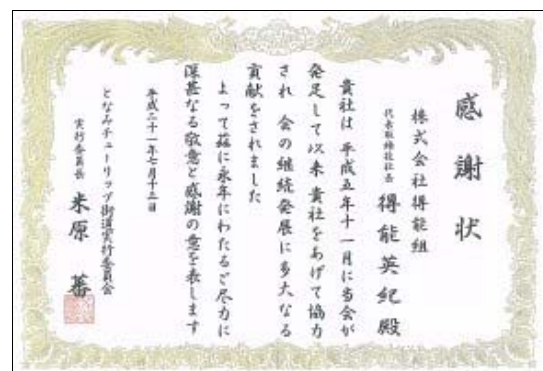 感謝状
株式会社得能組
代表取締役社長 得能英紀殿
貴社は 平成五年十一月に当会が
発足して以来 貴社をあげて協力
され 会の継続発展に多大なる
貢献をされました
よって茲に永年にわたるご尽力に
深甚なる敬意と感謝の意を表します
平成二十一年七月十三日
となみチューリップ街道実行委員会
実行委員長 米原 蕃